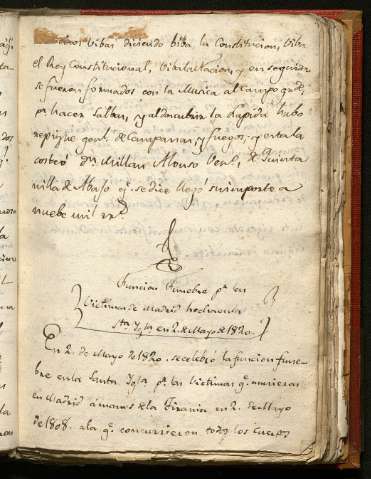 Vibas diciendo biba la Constitucion, Viba
el Rey Constitucional, Viba la Nacion, y en seguida
se fueron formados con la Musica al campo gr.de
p.a hacer salbas, y al descubrir la Lapida hubo
repique gen.l de Campanas, y fuegos, y esta la
costeó Dn. Millan Alonso de Quinta
nilla de Abajo q.e se dice llegó su importe a
nuebe mil r.s
Funcion Funebre p.r las
Victimas de Madrid hecha en la
Sta Ygª en 2. de Mayo de 1820.
En 2. de Mayo de 1820. se celebró la funcion fune-
bre en la Santa Ygª p.r las Victimas q.e murieron
en Madrid á manos de la Tirania en 2. de Mayo
de 1808. a la q.e concurrieron todos los Cuerpos